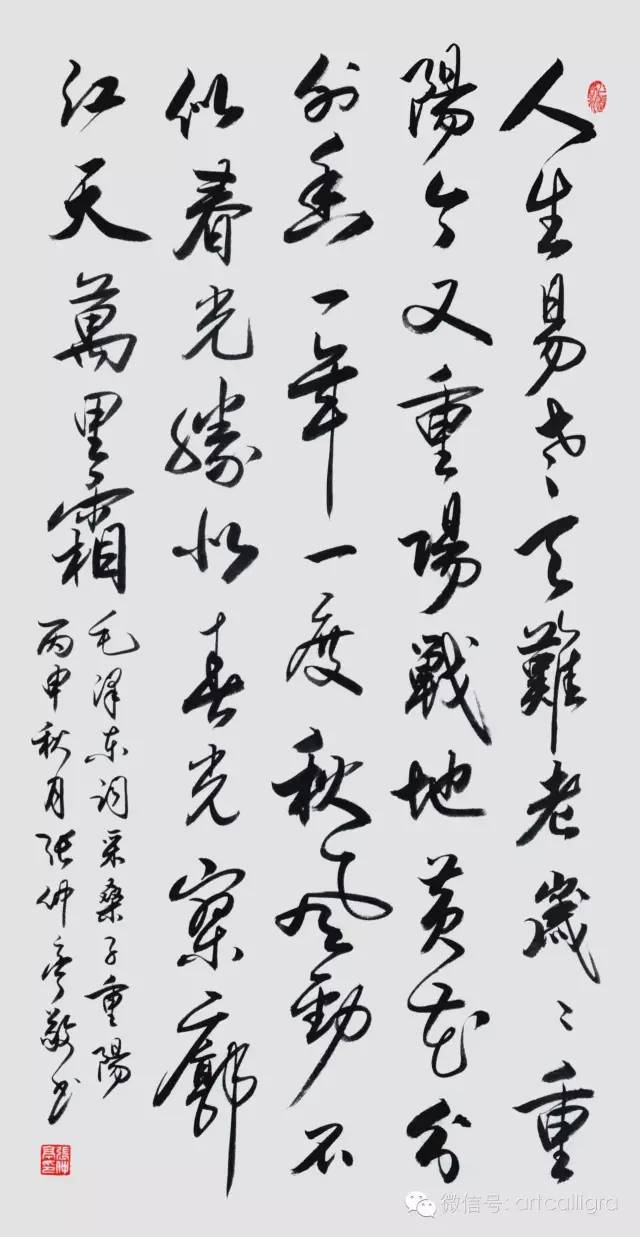 人生易老天難老歲〻重
陽今又重陽戰地黄花分
外香一年一度秋風勁不
似春光勝似春光寥廓
江天萬里霜
毛泽东词采桑子重陽
丙申秋月张仲亭敬书
張仲亭印
微信号: artcalligra